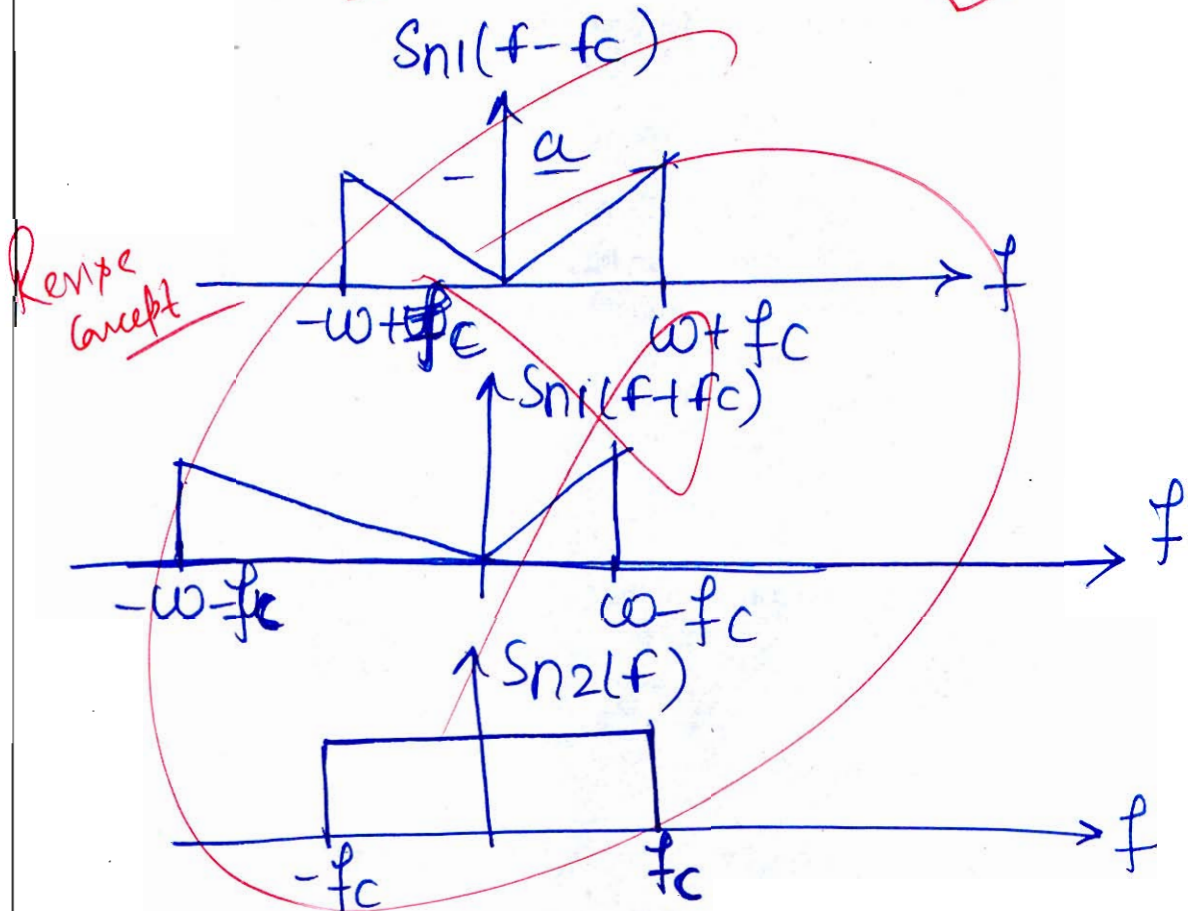 Sn1(f-fc)
a
f
Revise
Concept
-w+fc
w+fc
Sn1(f+fc)
f
-w-fc
w-fc
Sn2(f)
f
-fc
fc